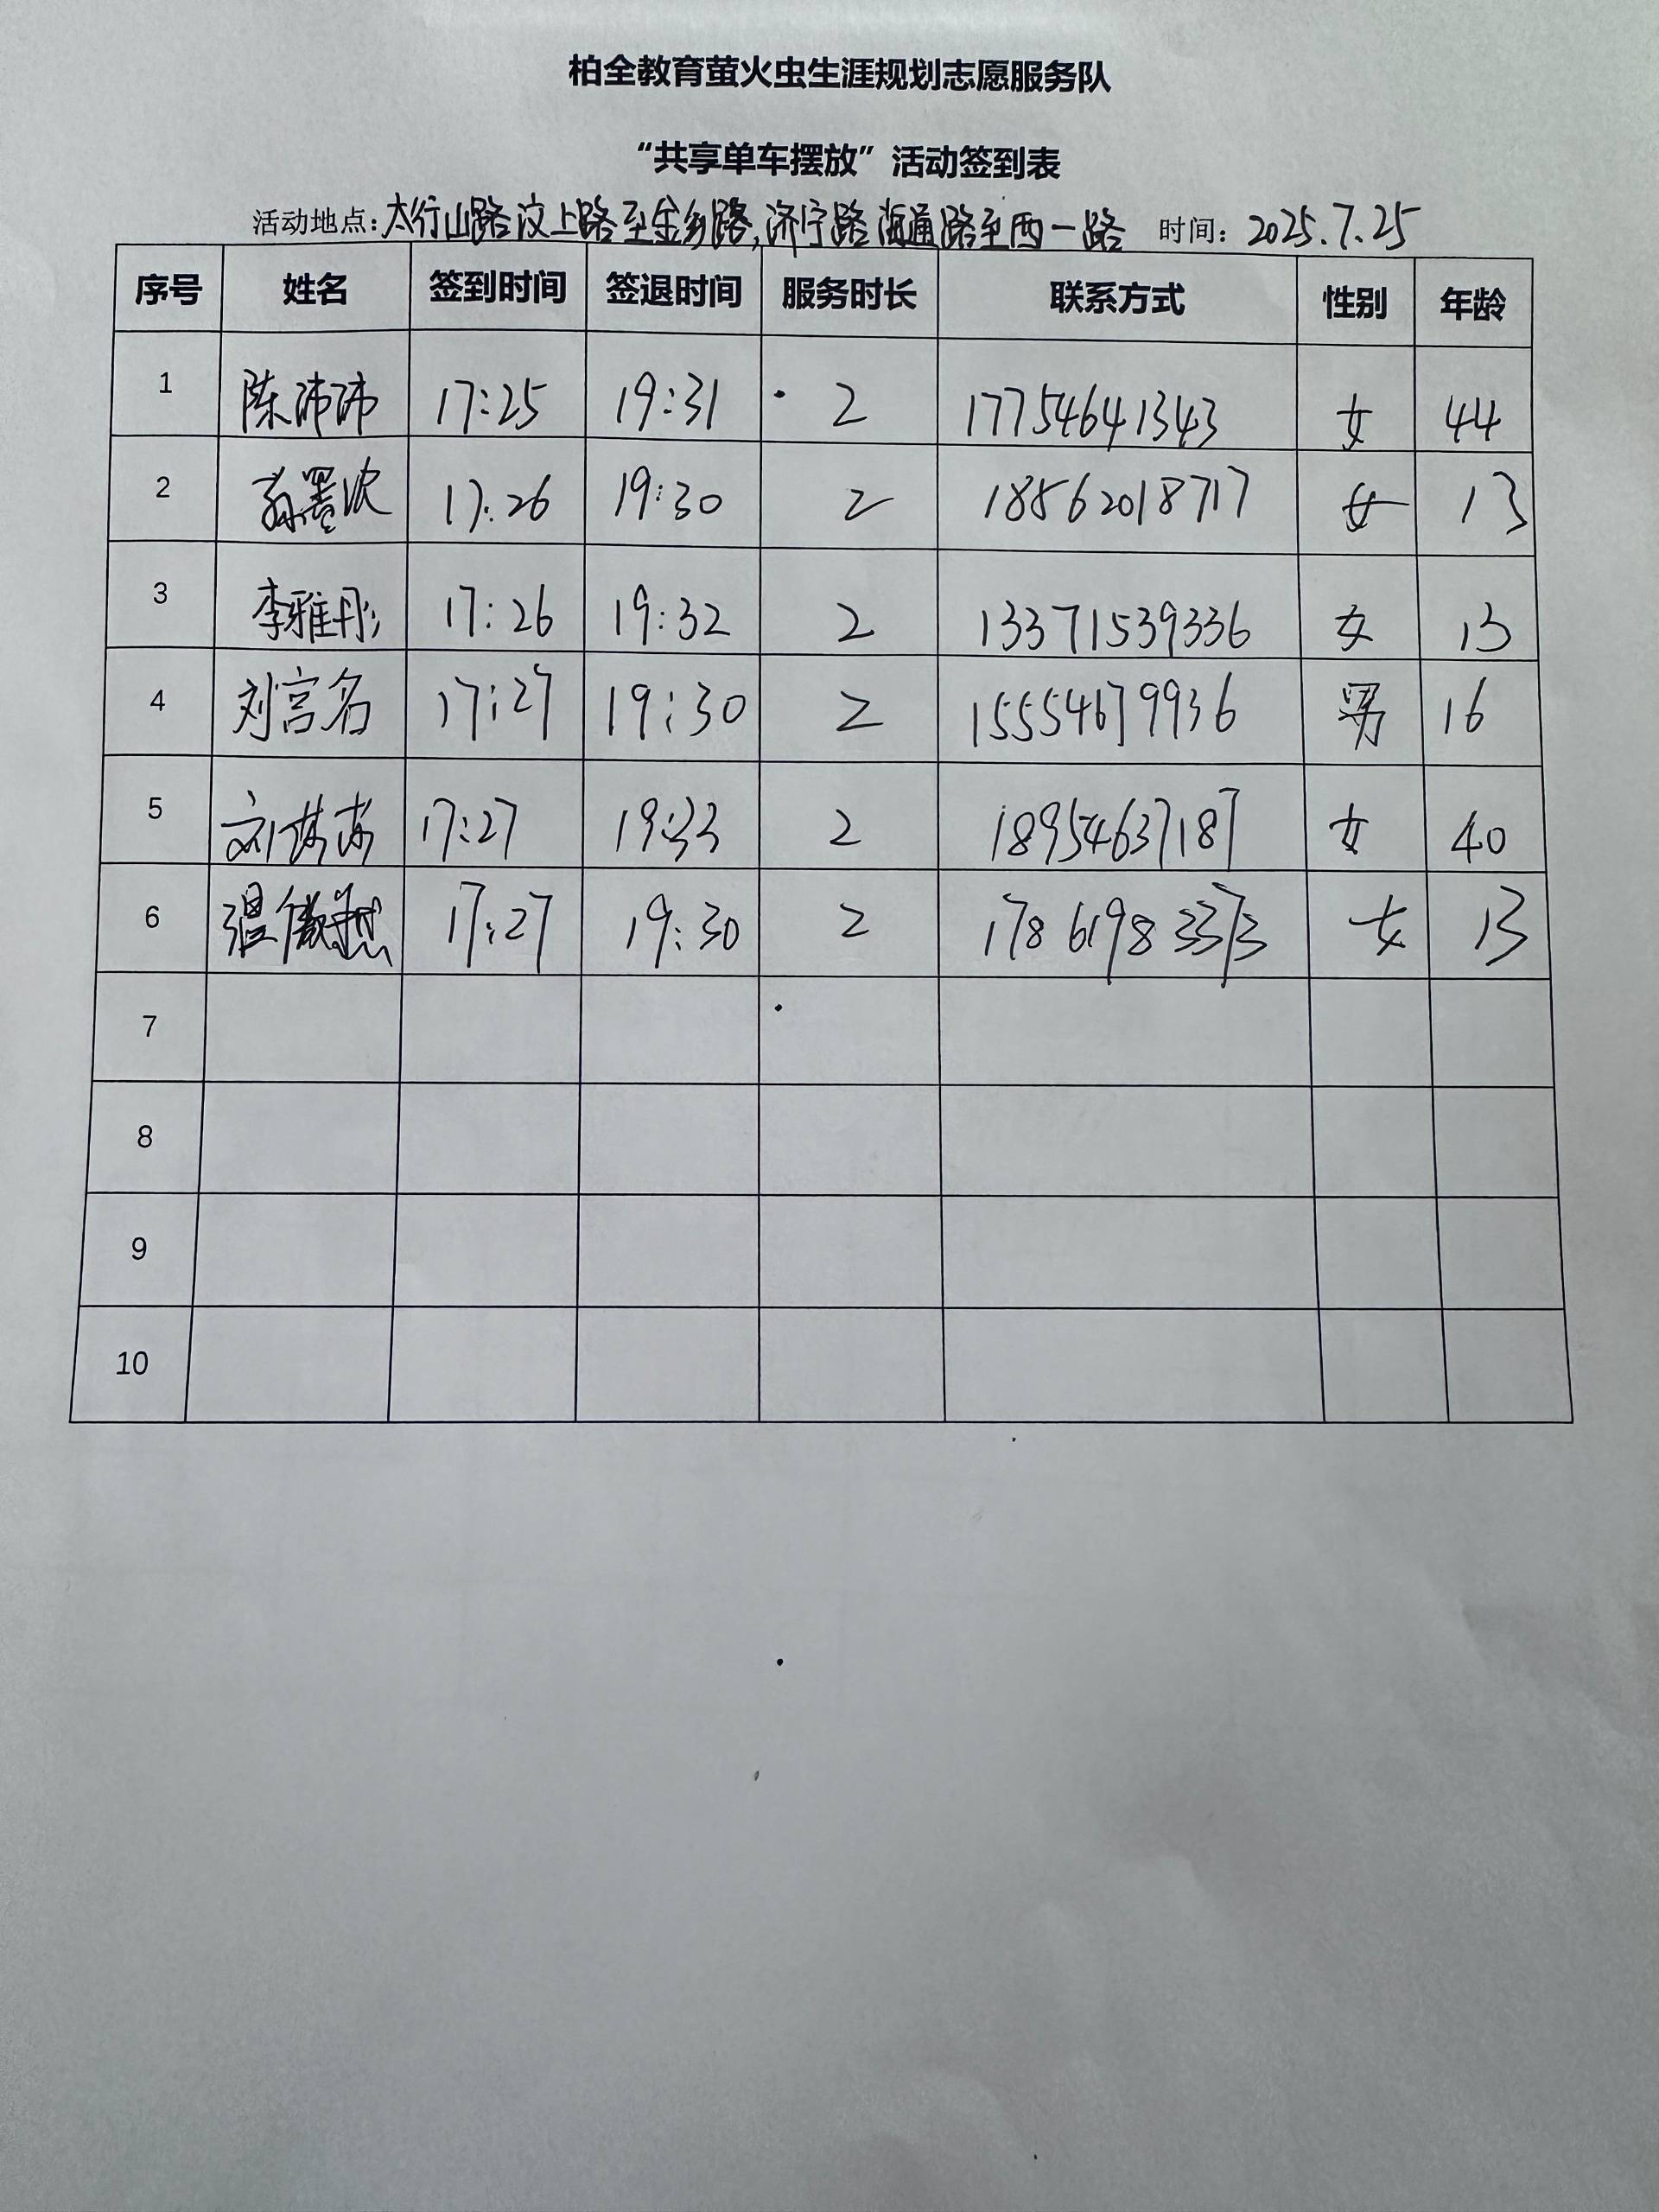 柏全教育萤火虫生涯规划志愿服务队
“共享单车摆放”活动签到表
活动地点：太行山路汶上路至金乡路，济宁路海通路至西一路 时间：2025.7.25
序号 姓名 签到时间 签退时间 服务时长 联系方式 性别 年龄
1 陈沛沛 17:25 19:31 2 17754641343 女 44
2 孙墨 17:26 19:30 2 18562018717 女 13
3 李雅彤 17:26 19:32 2 13371539336 女 13
4 刘宫名 17:27 19:30 2 15554679936 男 16
5 刘 17:27 19:33 2 18954637187 女 40
6 温 17:27 19:30 2 17861983373 女 13
7
8
9
10